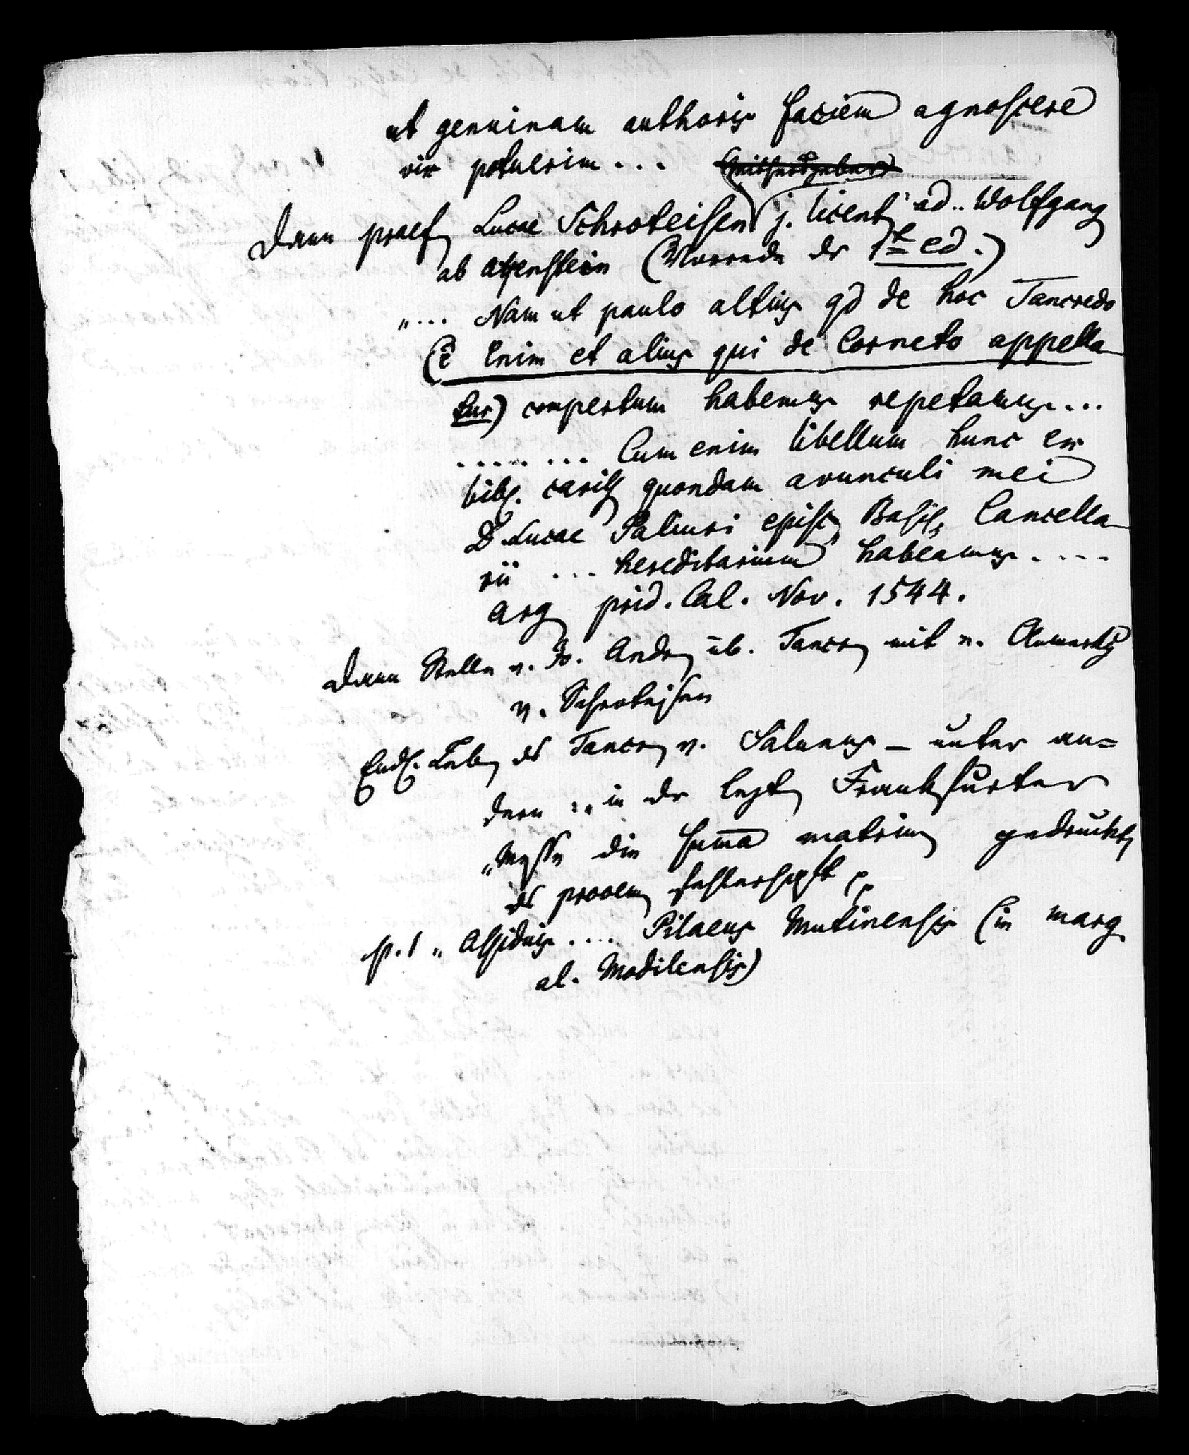 ut genuinam authoris faciem agnoscere
vix potuerim...
Dann praef Lucae Schroteisen j. licent ad.. Wolfgang
ab Atzenstein (Vorrede der 1t ed.)
"... Nam ut paulo altius qd de hoc Tancredo
(ē Enim et alius qui de Corneto appella-
tur) compertum habemus repetamus...
........ Cum enim libellum hunc ex
bibl. cariss quondam avunculi mei
D Lucae Salinri episc Basil. Cancella-
rii ... hereditarium habeamus....
Arg prid. Cal. Nov. 1544.
Dann Stelle v. Jo. Andr üb. Tancr mit n.
v. Schroteisen
Endl. Leb ds Tancr v. – unter an=
dern „in der letzt Frankfurter
„Messe die suma matrim gedruckt,
ds prooem fehlerhaft
p. 1 „Assiduis.... Pilaeus Mutinensis (in marg
al. Modilensis)